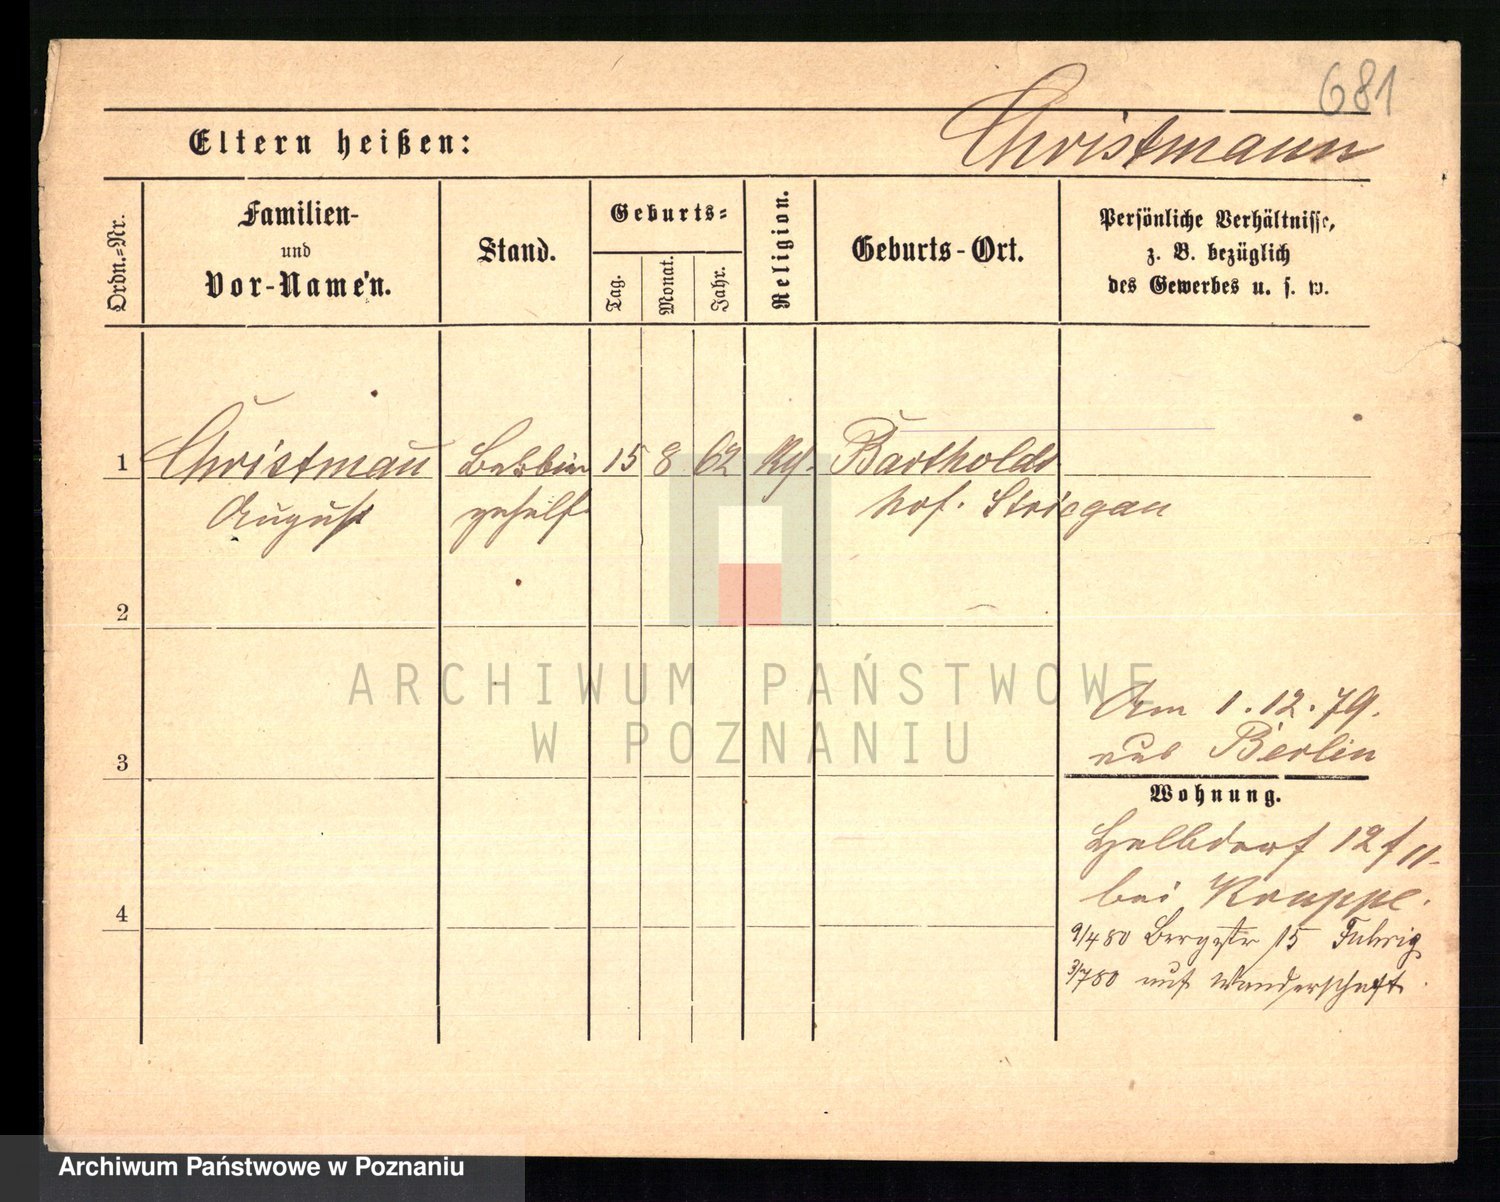 681
Eltern heißen: Christmann
Ordn.-Nr.
Familien-
und
Vor-Namen.
Stand.
Geburts-
Tag.
Monat.
Jahr.
Religion.
Geburts-Ort.
Persönliche Verhältnisse,
z. B. bezüglich
des Gewerbes u. s. w.
1 Christmañ 15 8 62 Bartholds
August gehilf hof. Striegau
2
3
4
Am 1.12.79.
aus Berlin
Wohnung.
Halbdorf 12
bei Krauppe.
9/4 80 Bergstr 15 Fuhrig
3/7 80 auf Wanderschaft.
ARCHIWUM PAŃSTWOWE
W POZNANIU
Archiwum Państwowe w Poznaniu